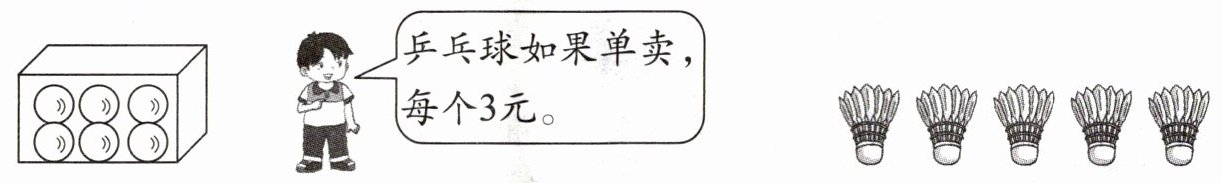 乒乓球如果单卖，
每个3元。